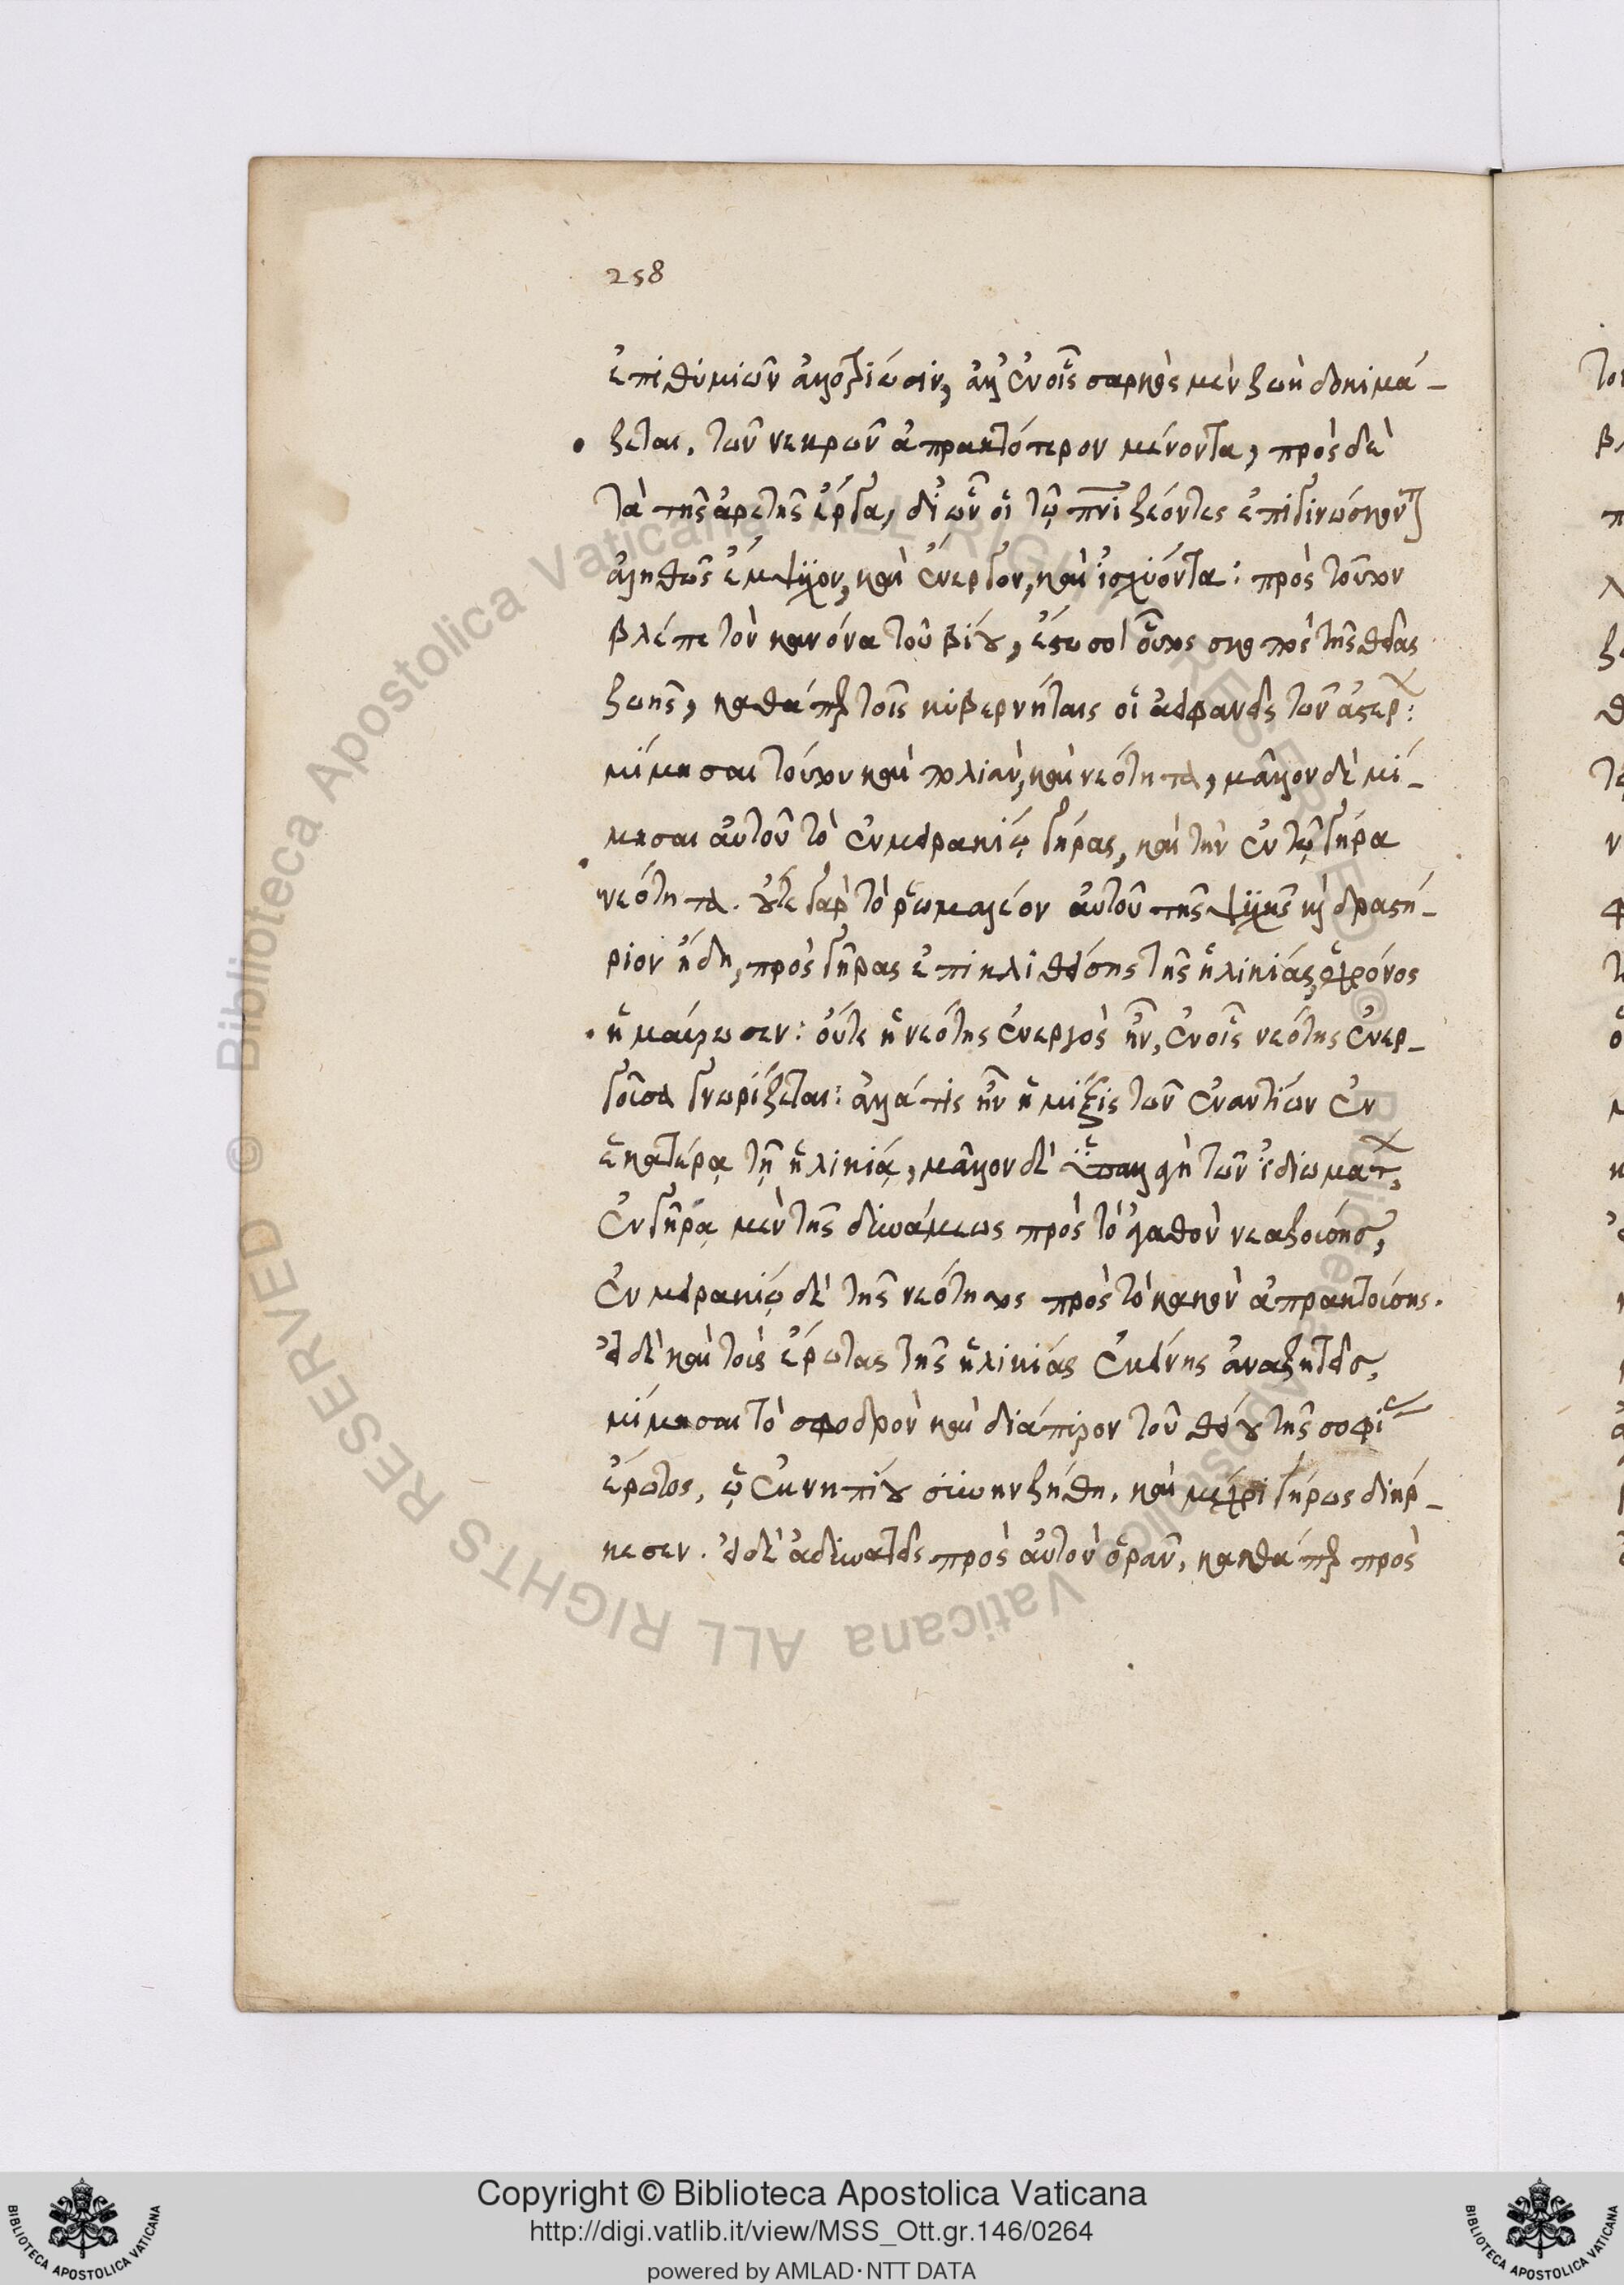 258
ἐπιθυμιῶν ἀλλοτρίωσιν, ἀλλ' ἐν οἷς σαρκὸς μὲν ζωὴ δοκιμά-
ζεται, τῶν νεκρῶν ἀπρακτότερον μένοντα, πρὸς δὲ
τὰ τῆς ἀρετῆς ἔργα, δι' ὧν οἱ τῷ πνι ζέοντες ἐπιγινώσκοντ
ἀληθῶς ἔμψυχον, καὶ ἐνεργὸν, καὶ ἰσχύοντα: πρὸς τοῦτον
βλέπε τὸν κανόνα τοῦ βίου, ἔστω σοι οὗτος σκοπὸς τῆς θείας
ζωῆς, καθάπερ τοῖς κυβερνήταις οἱ ἀειφανεῖς τῶν ἀστέρ:
μίμησαι τούτου καὶ πολιὰν, καὶ νεότητα, μᾶλλον δὲ μί-
μησαι αὐτοῦ τὸ ἐν μειρακίῳ γήρας, καὶ τὴν ἐν τῷ γήρα
νεότητα. οὔτε γὰρ τὸ ῥωμαλέον αὐτοῦ τῆς ψυχῆς κ δραστή-
ριον ἤδη, πρὸς γῆρας ἐπικλιθείσης τῆς ἡλικίας, ὁ χρόνος
ἠμαύρωσεν: οὔτε ἡ νεότης ἐνεργὸς ἦν, ἐν οἷς νεότης ἐνερ-
γοῦσα γνωρίζεται: ἀλλά τις ἦν ἡ μίξις τῶν ἐναντίων ἐν
ἑκατέρᾳ τῇ ἡλικίᾳ, μᾶλλον δὲ ὑπαλλαγὴ τῶν ἰδιωμάτ,
ἐν γήρᾳ μὲν τῆς δυνάμεως πρὸς τὸ ἀγαθὸν νεαζούσης,
ἐν μειρακίῳ δὲ τῆς νεότητος πρὸς τὸ κακὸν ἀπρακτούσης.
εἰ δὲ καὶ τοὺς ἔρωτας τῆς ἡλικίας ἐκείνης ἀναζητεῖς,
μίμησαι τὸ σφοδρὸν καὶ διάπυρον τοῦ θείου τῆς σοφί
ἔρωτος, ᾧ ἐκ νηπίου συνηνξήθη, καὶ μέχρι γήρως διήρ-
κεσεν. εἰ δὲ ἀδυνατεῖς πρὸς αὐτὸν ὁρᾶν, καθάπερ πρὸς
Copyright © Biblioteca Apostolica Vaticana
http://digi.vatlib.it/view/MSS_Ott.gr.146/0264
powered by AMLAD·NTT DATA